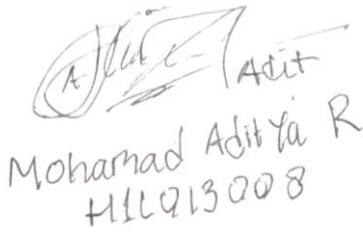 Adit
Mohamad Aditya R
H1L013008